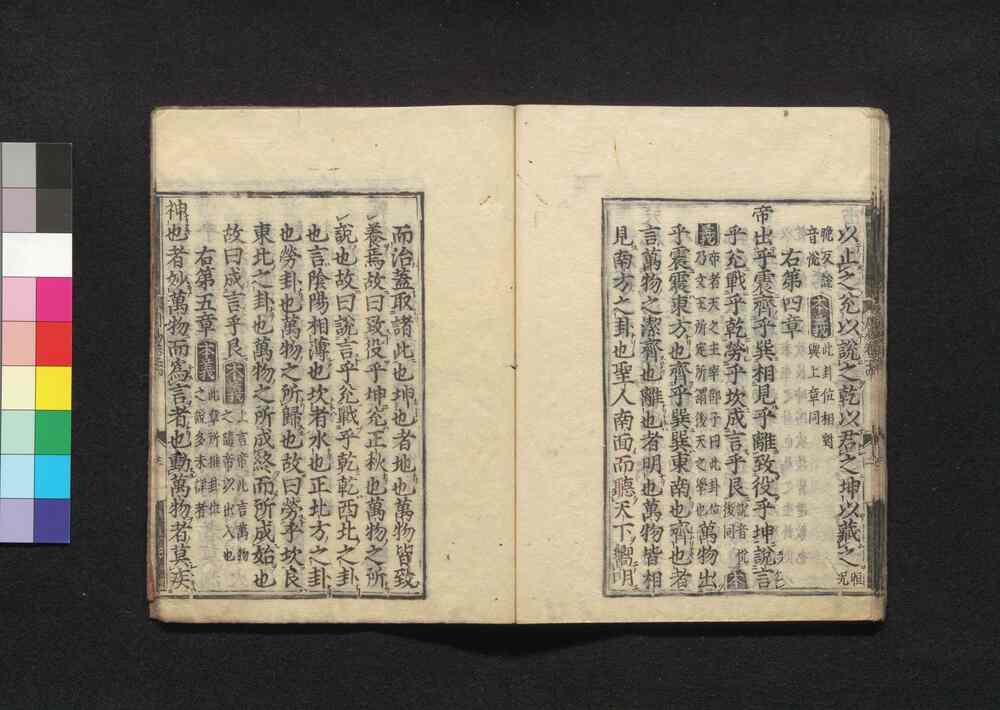 以止之兌以說之乾以君之坤以藏之
晚反說
音悅本義此卦位相對
與上章同
右第四章
帝出乎震齊乎巽相見乎離致役乎坤說言
乎兌戰乎乾勞乎坎成言乎艮說音悅
後同本
義帝者天之主宰邵子曰此卦位
乃文王所定所謂後天之學也萬物出
乎震震東方也齊乎巽巽東南也齊也者
言萬物之潔齊也離也者明也萬物皆相
見南方之卦也聖人南面而聽天下嚮明
而治蓋取諸此也坤也者地也萬物皆致
養焉故曰致役乎坤兌正秋也萬物之所
說也故曰說言乎兌戰乎乾乾西北之卦
也言陰陽相薄也坎者水也正北方之卦
也勞卦也萬物之所歸也故曰勞乎坎艮
東北之卦也萬物之所成終而所成始也
故曰成言乎艮本義上言帝此言萬物
之隨帝以出入也
右第五章本義此章所推卦位
之說多未詳者
神也者妙萬物而為言者也動萬物者莫疾